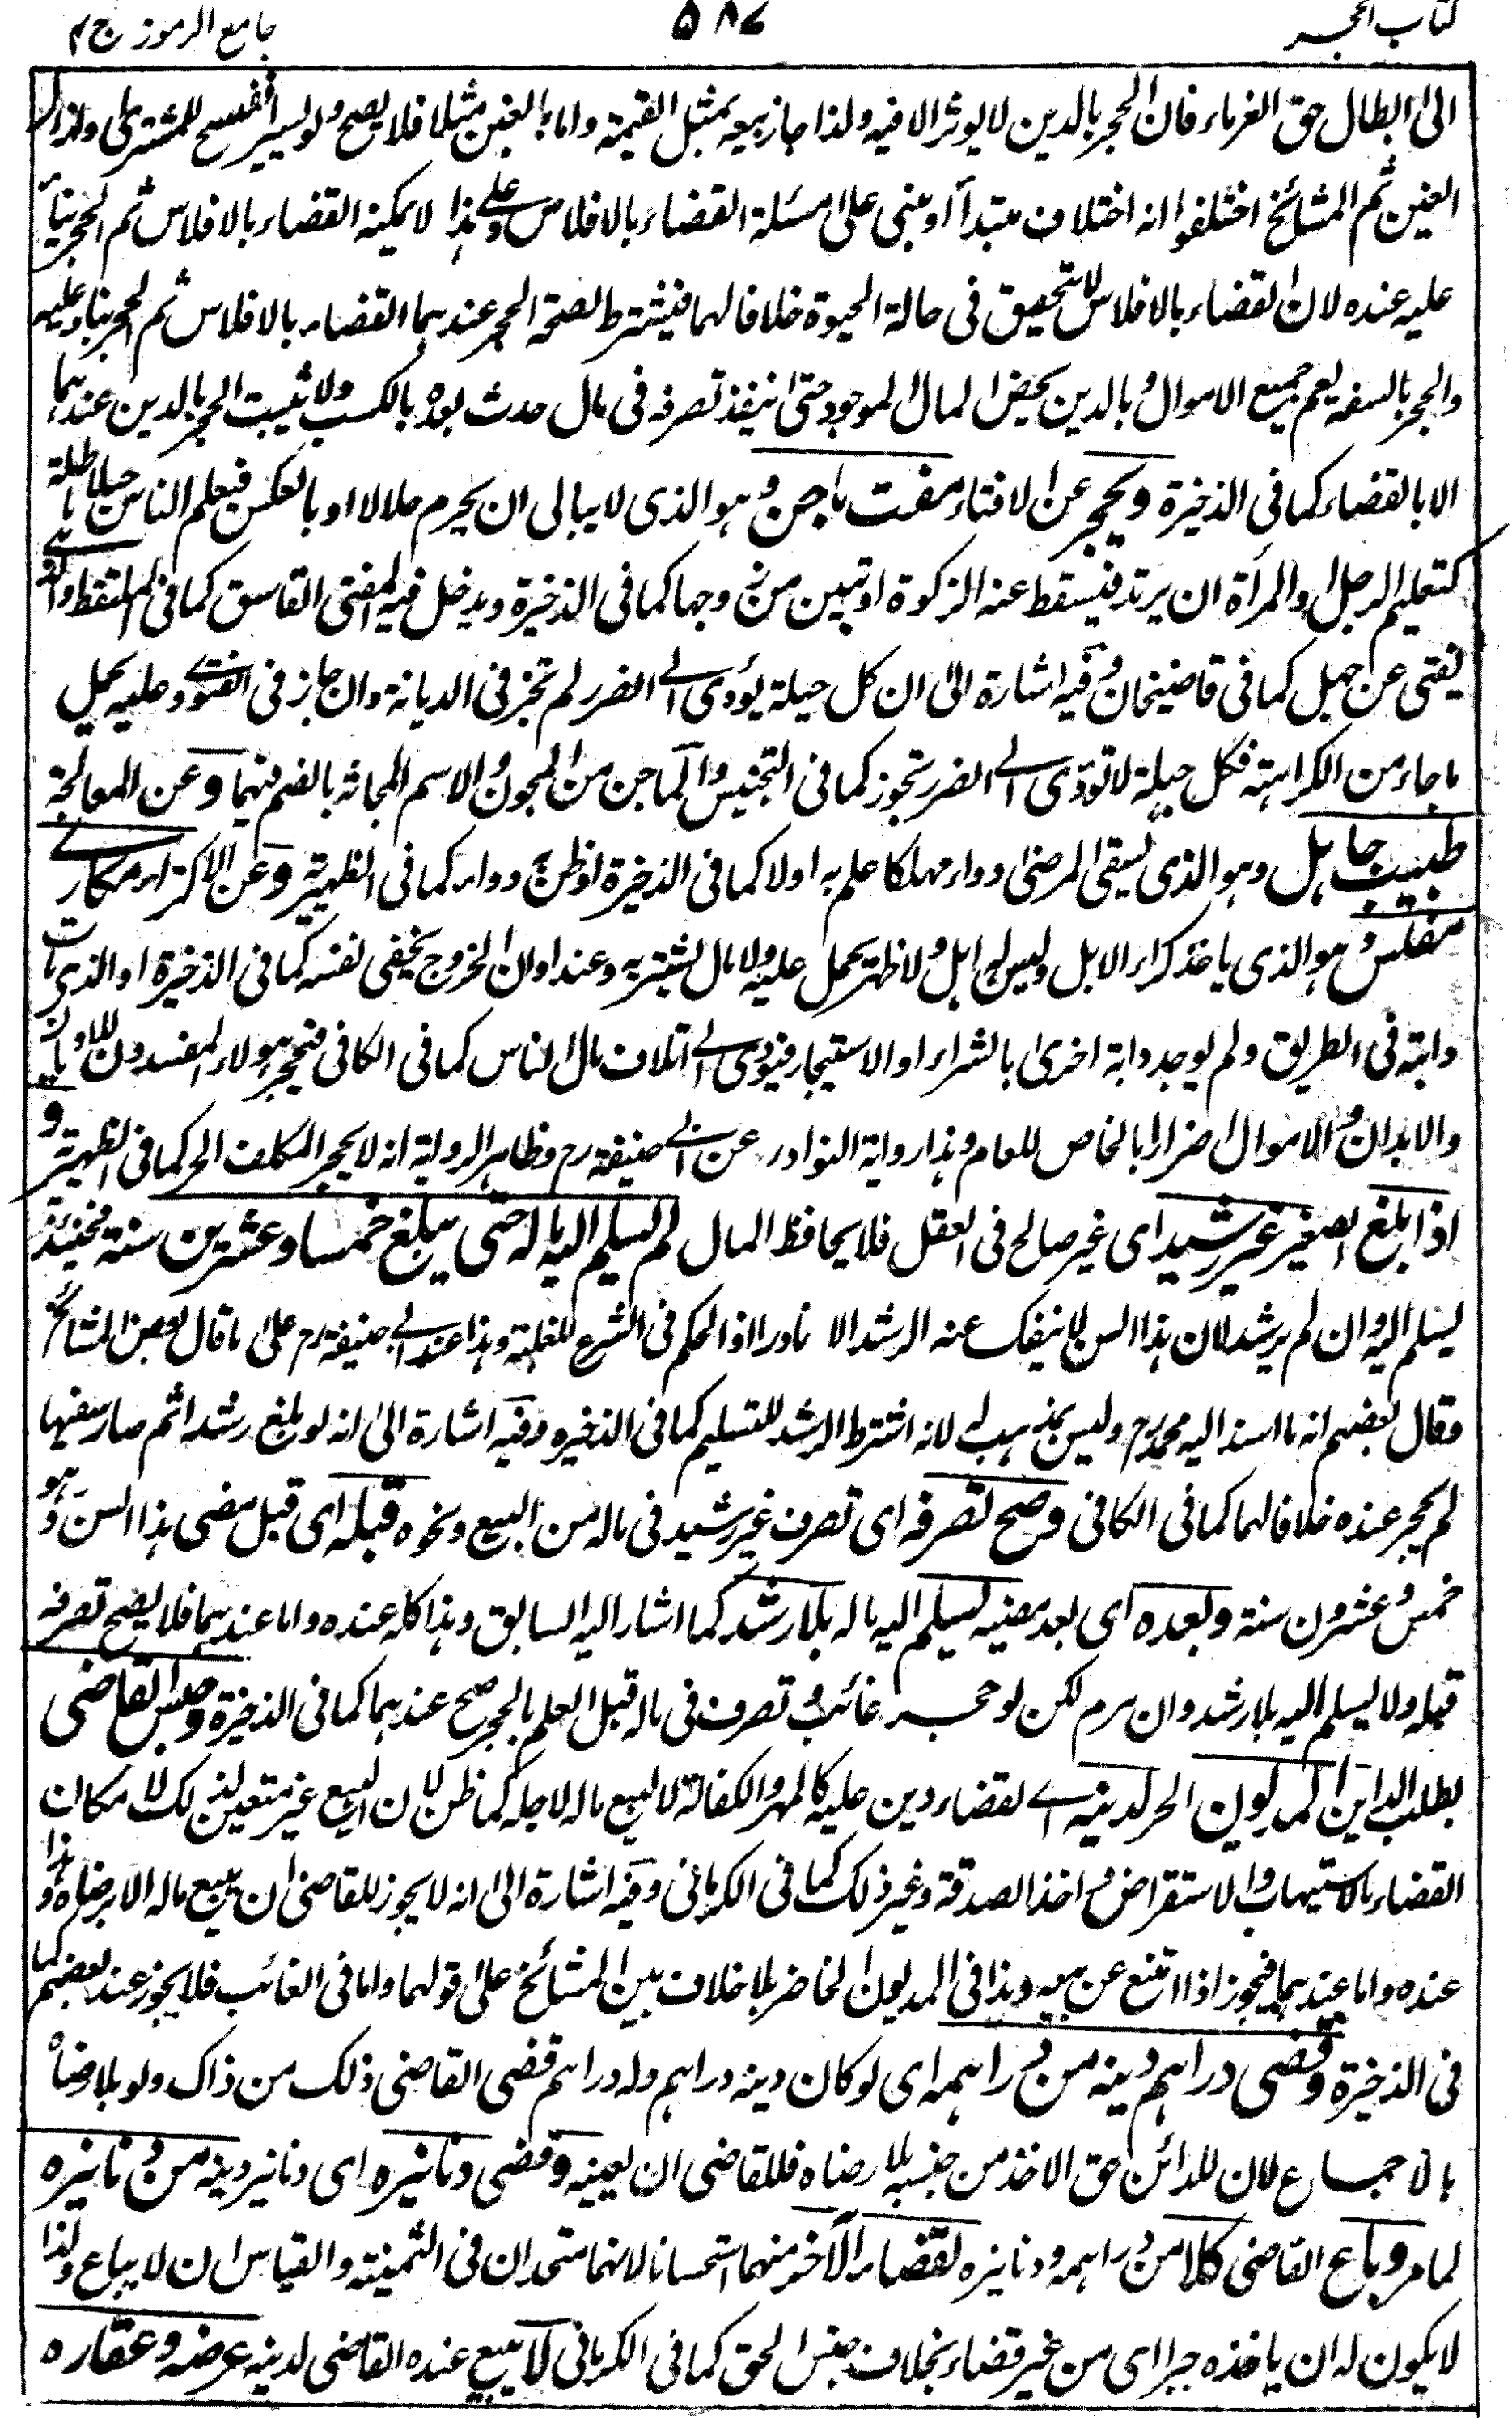 كتاب الحجر ٥٨٧ جامع الرموز ج ٢
الى ابطال حق الغرماء فان الحجر بالدين لا يوثر الا فيه ولذا جاز بيعه بمثل القيمة واما بالغبن مثلا فلا يصح ولو يسيرا ففسخ للمشترى وازال
الغبن ثم المشائخ اختلفوا انه اختلاف مبتدأ او مبنى على مسئلة القضاء بالافلاس وعلى هذا لا يمكنه القضاء بالافلاس ثم الحجر بناء
عليه عنده لان القضاء بالافلاس لا يتحقق فى حالة الحيوة خلافا لهما فيشترط لصحة الحجر عندهما القضاء بالافلاس ثم الحجر بناء عليه
والحجر بالسفه يعم جميع الاموال وبالدين يخص المال الموجود حتى ينفذ تصرفه فى مال حدث بعده بالكسب ولا يثبت الحجر بالدين عندهما
الا بالقضاء كما فى الذخيرة ويحجر عن الافتاء مفت ماجن وهو الذى لا يبالى ان يحرم حلالا او بالعكس فيعلم الناس حيلا باطلة
كتعليم الرجل والمرأة ان يرتد فيسقط عنه الزكوة او تبين من زوجها كما فى الذخيرة ويدخل فيه المفتى الفاسق كما فى الملتقط والذى
يفتى عن جهل كما فى قاضيخان وفيه اشارة الى ان كل حيلة يؤدى الى الضرر لم تجز فى الديانة وان جاز فى الفتوى وعليه يحمل
ما جاء من الكراهة فكل حيلة لا تؤدى الى الضرر تجوز كما فى التجنيس والماجن من المجون والاسم المجانة بالضم فيهما وعن المعالجة
طبيب جاهل وهو الذى يسقى المرضى دواء مهلكا علم به اولا كما فى الذخيرة او ظن دواء كما فى الظهيرية وعن الاكتراء مكارى
مفلس وهو الذى ياخذ كراء الابل وليس له ابل ولا ظهر يحمل عليه ولا مال يشتريه وعند اوان الخروج يخفى نفسه كما فى الذخيرة او الذى مات
دابته فى الطريق ولم يوجد دابة اخرى بالشراء او الاستيجار فيؤدى الى اتلاف مال الناس كما فى الكافى فيحجر هولاء المفسدون للاديان
والابدان والاموال اضرارا بالخاص للعام وهذا رواية النوادر عن ابى حنيفة رح وظاهر الرواية انه لا يحجر المكلف الحر كما فى الظهيرية و
اذا بلغ الصغير غير رشيد اى غير صالح فى العقل فلا يحافظ المال لم يسلم اليه ماله حتى يبلغ خمسا وعشرين سنة فحينئذ
يسلم اليه وان لم يرشد لان هذا السن لا ينفك عنه الرشد الا نادرا والحكم فى الشرع للغلبة وهذا عند ابى حنيفة رح على ما قال بعض المشائخ
وقال بعضهم انه ما اسند اليه محمد رح وليس بمذهب له لانه اشترط الرشد للتسليم كما فى الذخيره وفيه اشارة الى انه لو بلغ رشدا ثم صار سفيها
لم يحجر عنده خلافا لهما كما فى الكافى وصح تصرفه اى تصرف غير رشيد فى ماله من البيع ونحوه قبله اى قبل مضى هذا السن وهو
خمس وعشرون سنة وبعده اى بعد مضيه يسلم اليه ماله بلا رشد كما اشار اليه السابق وهذا كله عنده واما عندهما فلا يصح تصرفه
قبله ولا يسلم اليه بلا رشد وان هرم لكن لو حجر غائب وتصرف فى ماله قبل العلم بالحجر صح عندهما كما فى الذخيرة وحبس القاضى
بطلب الداين المديون الحر لدينه اى لقضاء دين عليه كالمهر والكفالة لا لبيع ماله لاجله كما ظن لان البيع غير متعين لذلك لا مكان
القضاء بالاستيهاب والاستقراض واخذ الصدقة وغير ذلك كما فى الكرمانى وفيه اشارة الى انه لا يجوز للقاضى ان يبيع ماله الا برضاه وهذا
عنده واما عندهما فيجوز اذا امتنع عن بيعه وهذا فى المديون الحاضر بلا خلاف بين المشائخ على قولهما واما فى الغائب فلا يجوز عند بعضهم كما
فى الذخيرة وقضى دراهم دينه من دراهمه اى لو كان دينه دراهم وله دراهم قضى القاضى ذلك من ذاك ولو بلا رضاه
بالاجماع لان للدائن حق الاخذ من جنسه بلا رضاه فللقاضى ان يعينه وقضى دنانيره اى دنانير دينه من دنانيره
لما مر وباع القاضى كلا من دراهمه ودنانيره لقضاء الآخر منهما استحسانا لانهما متحدان فى الثمنية والقياس ان لا يباع ولذا
لا يكون له ان ياخذه جبرا اى من غير قضاء بخلاف جنس الحق كما فى الكرمانى لا يبيع عنده القاضى لدينه عرضه وعقاره